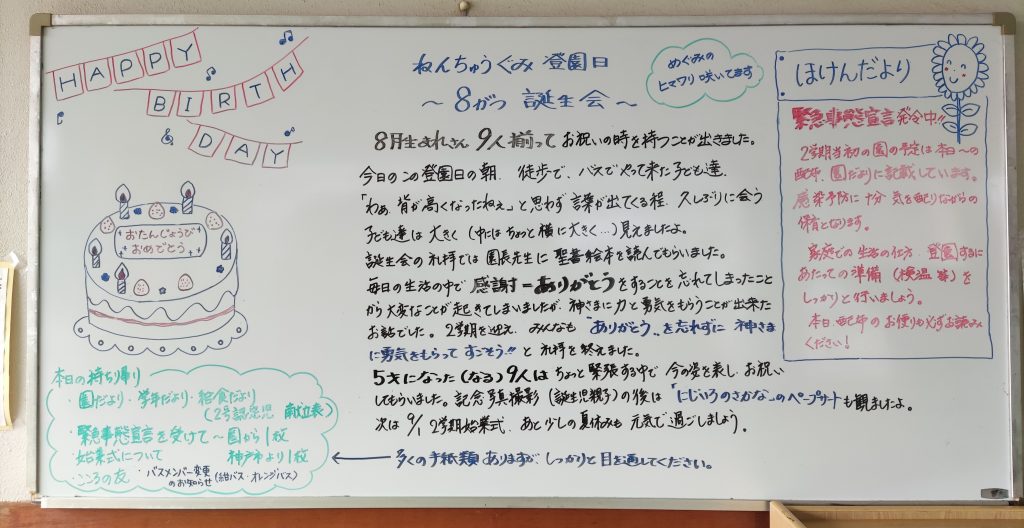 HAPPY
BIRTH
DAY
おたんじょうび
おめでとう
ねんちゅうぐみ 登園日
～ 8がつ 誕生会 ～
めぐみの
ヒマワリ咲いてます
8月生まれさん 9人揃って お祝いの時を持つことが出きました。
今日のこの登園日の朝、徒歩で、バスでやって来た子ども達、
「わぁ 背が高くなったねぇ」と思わず言葉が出てくる程、久しぶりに会う
子ども達は大きく (中にはちょっと横に大きく…) 見えましたよ。
誕生会の礼拝では園長先生に聖書絵本を読んでもらいました。
毎日の生活の中で感謝=ありがとうをすることを忘れてしまったこと
から大変なことが起きてしまいましたが、神さまに力と勇気をもらうことが出来た
お話でした。2学期を迎え、みんなも "ありがとう" を忘れずに 神さま
に勇気をもらって すごそう!! と礼拝を終えました。
5才になった(なる)9人は ちょっと緊張する中で 今の姿を表し、お祝い
してもらいました。記念写真撮影 (誕生児親子)の後は「にじいろのさかな」のペープサートも観ましたよ。
次は 9/1 2学期始業式、あと少しの夏休みも 元気で過ごしましょう。
← 多くの手紙類ありますが、しっかりと目を通してください。
本日の持ち帰り
・園だより・学年だより・給食だより
(2号認定児 献立表)
・緊急事態宣言を受けて～園から1枚
・始業式について 神戸市より1枚
・こころの友 バスメンバー変更
のお知らせ (紺バス・オレンジバス)
ほけんだより
緊急事態宣言発令中!!
2学期当初の園の予定は本日～の
配布、園だよりに記載しています。
感染予防に十分気を配りながらの
保育となります。
家庭での生活の仕方、登園するに
あたっての準備 (検温 等)を
しっかりと行いましょう。
本日配布のお便りも必ずお読み
ください!